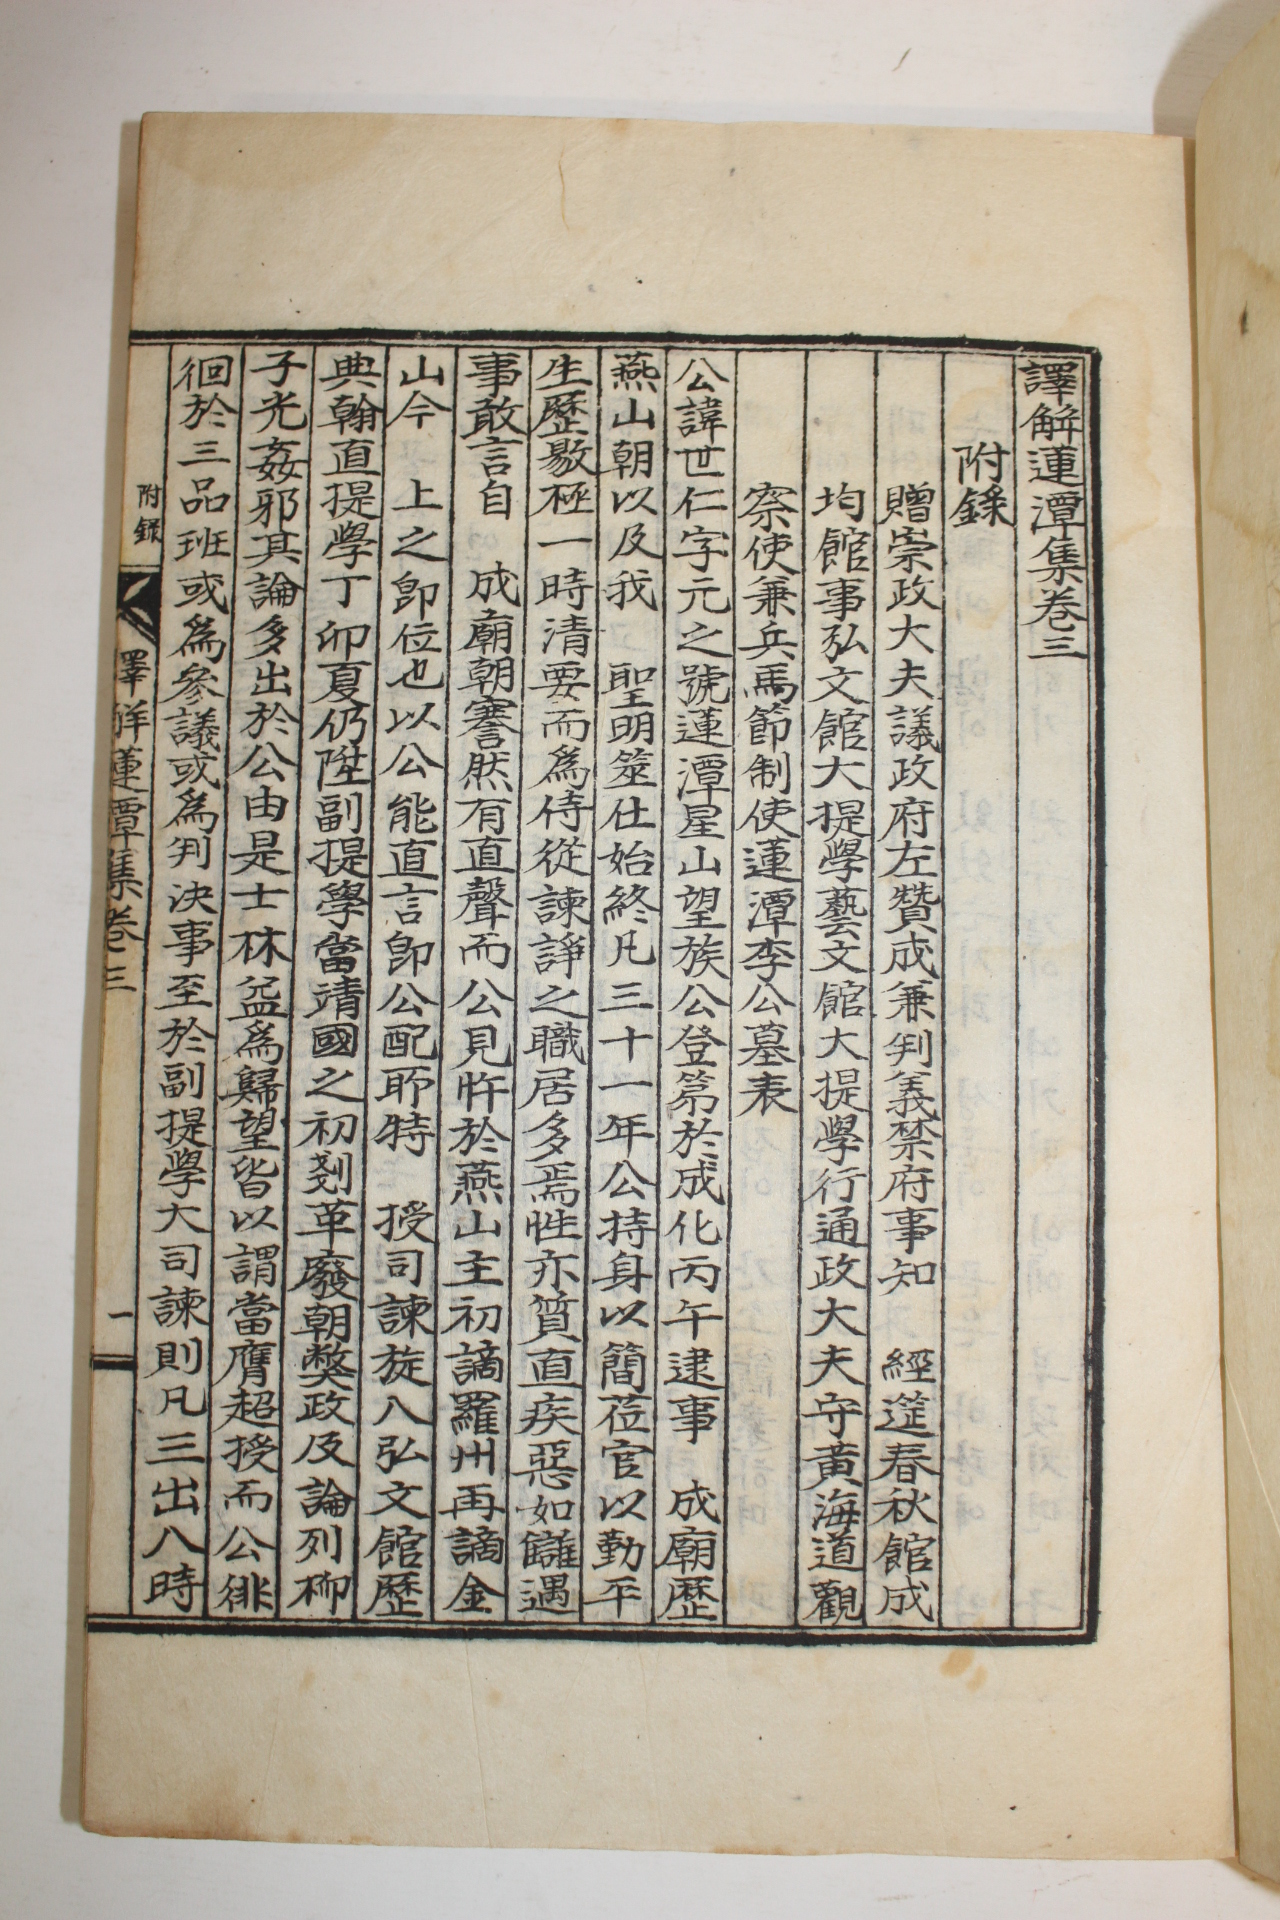 譯解蓮潭集卷三
附錄
贈崇政大夫議政府左贊成兼判義禁府事知 經筵春秋館成
均館事弘文館大提學藝文館大提學行通政大夫守黃海道觀
察使兼兵馬節制使蓮潭李公墓表
公諱世仁字元之號蓮潭星山望族公登第於成化丙午逮事 成廟歷
燕山朝以及我 聖明筮仕始終凡三十一年公持身以簡莅官以勤平
生歷敭極一時清要而爲侍從諫諍之職居多焉性亦質直疾惡如讎遇
事敢言自 成廟朝謇然有直聲而公見忤於燕山主初謫羅州再謫金
山今 上之卽位也以公能直言卽公配所特 授司諫旋入弘文館歷
典翰直提學丁卯夏仍陞副提學當靖國之初刻革廢朝獘政及論列柳
子光姦邪其論多出於公由是士林益爲歸望皆以謂當膺超授而公徘
徊於三品班或爲參議或爲判決事至於副提學大司諫則凡三出入時
附錄
譯解蓮潭集卷三
一